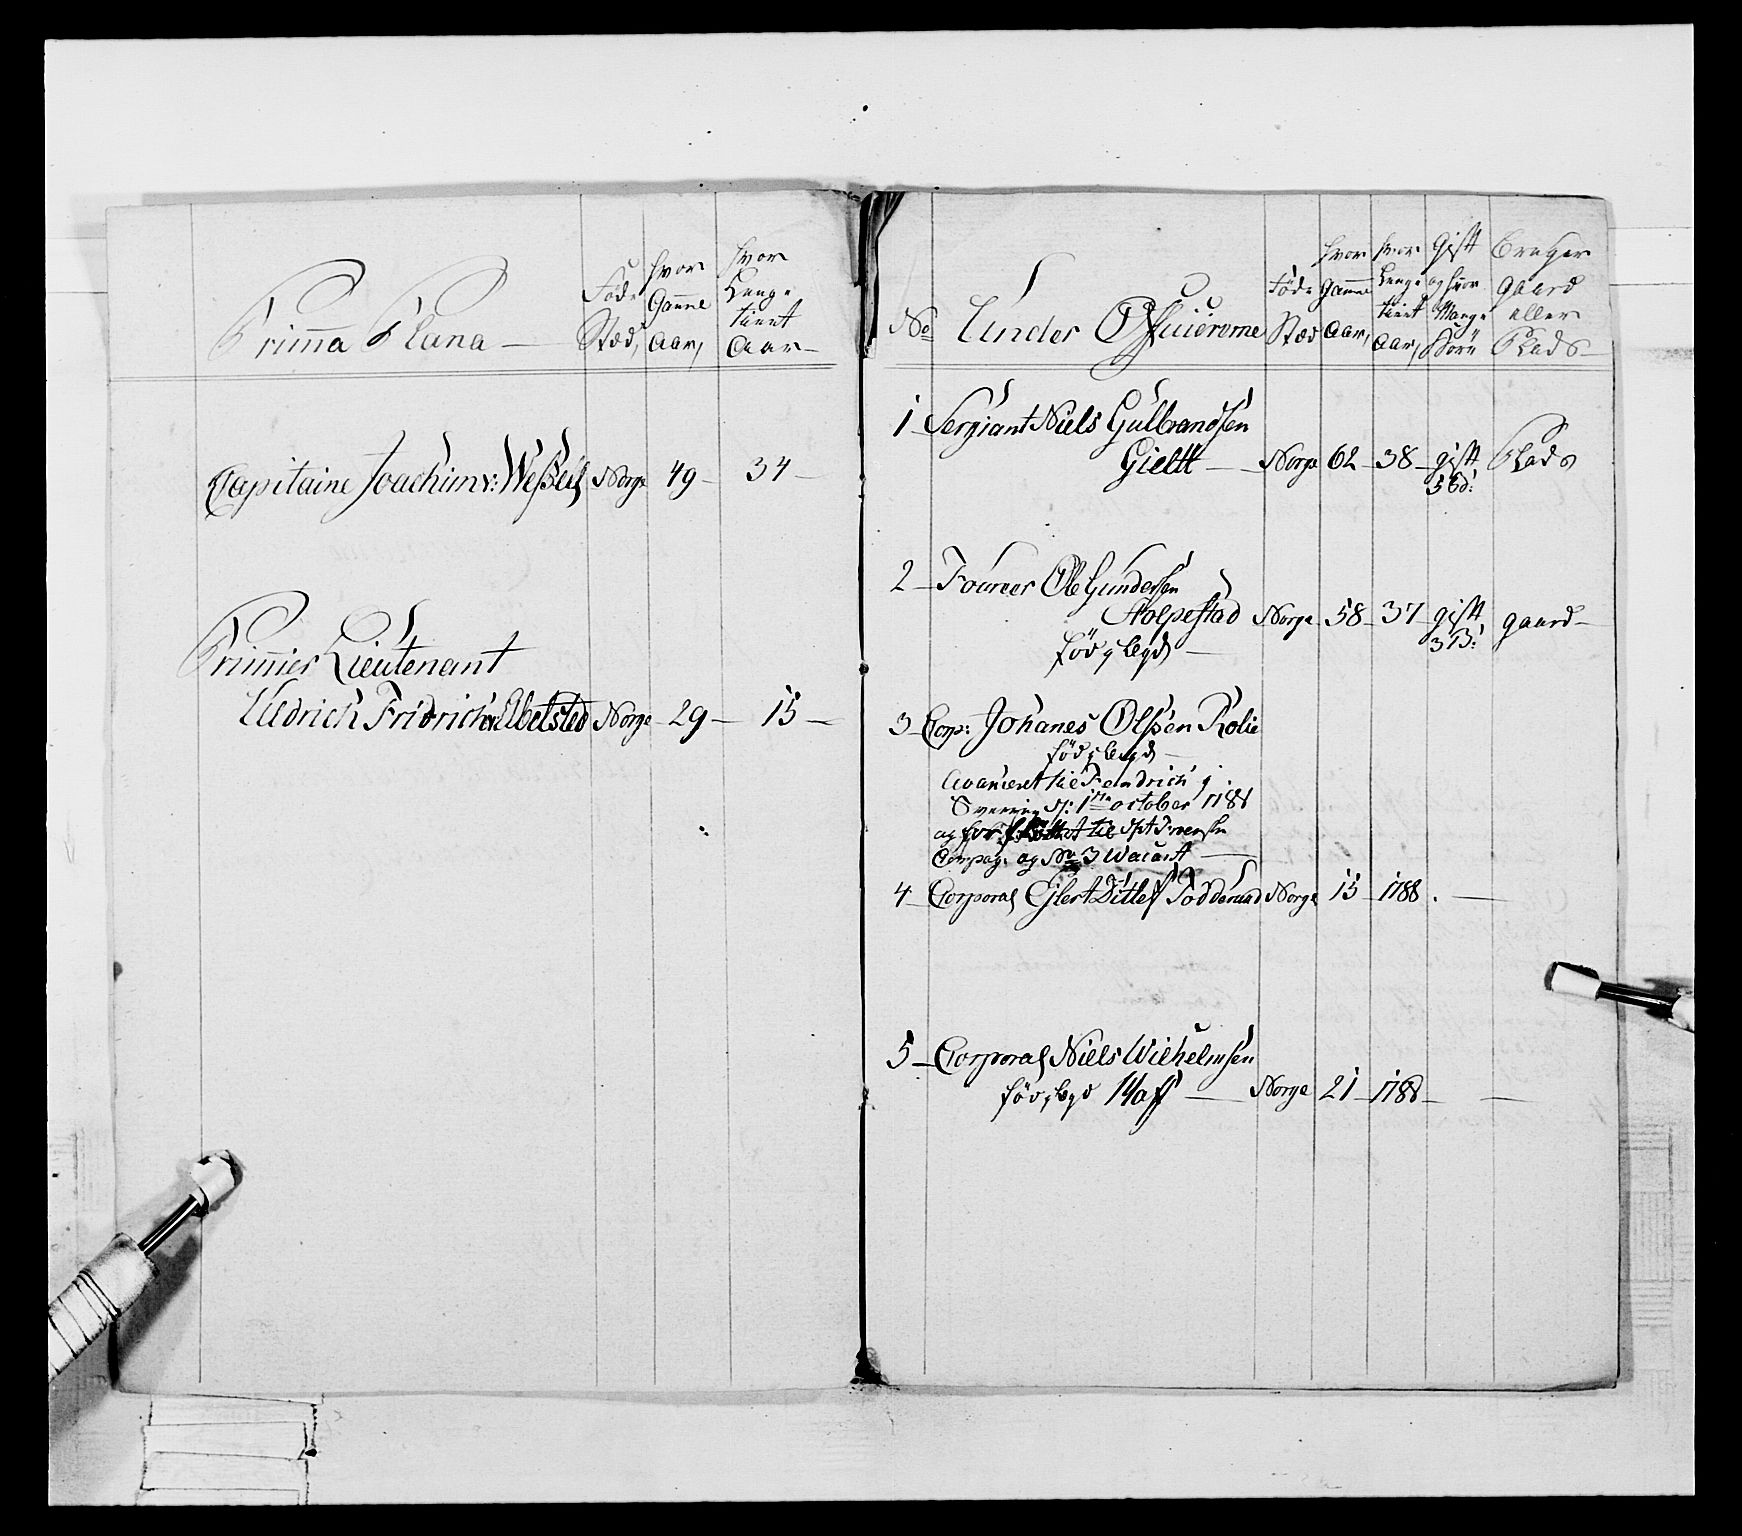 Primma Plana —
Føde Stæd,
hvor Gamle Aar,
hvor Lenge tient Aar —
Capitaine Joachim v: Weßell Norge 49 — 34 —
Primier Lieutenant
Uldrich Fridrich Ebelsted Norge — 29 — 15 —
No
Under Officiererne
Føde Stæd
hvor gamle Aar,
hvor Lenge tient Aar,
Gift og hvor Mange Børn
Bruger gaard eller Plads —
1 — Sergiant Niels Gulbrandsen
Gielt — Norge 62 — 38 — gift Plads
2 — Fourer Ole Gundersen
Holpestad Norge 58 — 37 gift gaard —
3 B:
fød i legd —
3 — Corp: Johanes Olßen Rolie
fød i legd —
Avancert til Fendrich i
Sverrig d: 1te october 1788
og til
Compag: og No 3 Wacant —
4 — Corporal Ejlert Ditlef Norge 15 — 1788. —
5 — Corporal Niels Wilhelmsen
fød i legd Haff — Norge 21 — 1788 — —